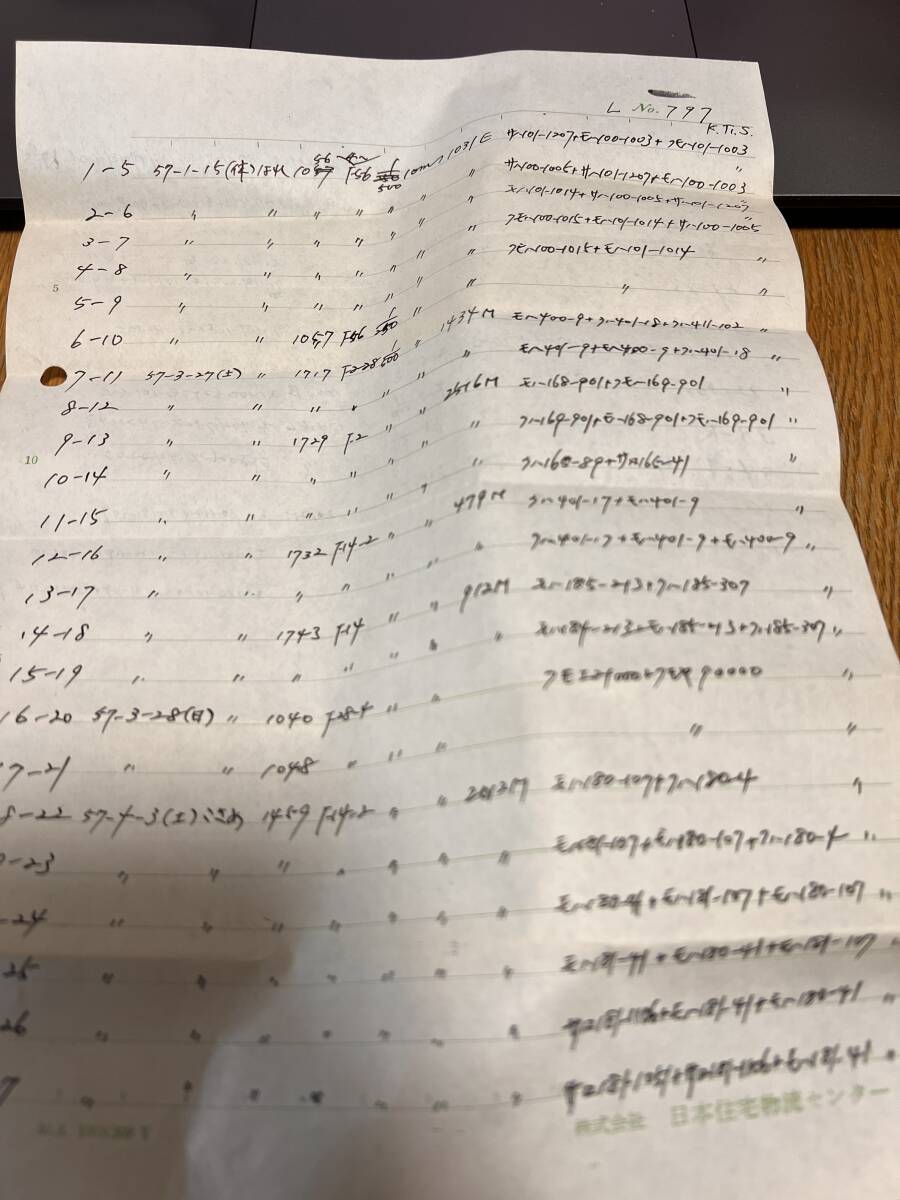 L No. 797
K.Ti.S.
1-5 57-1-15(休)晴れ 1057 F56 1/500 10mm 1031E サハ101-1207+モハ100-1003+クモハ101-1003
2-6 〃 〃 〃 〃 〃 〃 〃 サハ100-1005+サハ101-1207+モハ100-1003 〃
3-7 〃 〃 〃 〃 〃 〃 〃 モハ101-1014+サハ100-1005+サハ101-1207 〃
4-8 〃 〃 〃 〃 〃 〃 〃 クモハ100-1015+モハ101-1014+サハ100-1005 〃
5-9 〃 〃 〃 〃 〃 〃 〃 クモハ100-1015+モハ101-1014 〃
5
6-10 〃 〃 1057 F56 〃 〃 〃 〃
7-11 57-3-27(土) 〃 1717 〃 1434M モハ400-9+クハ401-18+クハ411-102 〃
8-12 〃 〃 〃 〃 〃 〃 モハ401-9+モハ400-9+クハ401-18 〃
9-13 〃 〃 1729 F2 〃 〃 モハ168-901+クモハ169-901 〃
10
10-14 〃 〃 〃 〃 〃 〃 〃 クハ169-901+モハ168-901+クモハ169-901 〃
11-15 〃 〃 〃 〃 〃 〃 〃 クハ165-89+サハ165-41 〃
12-16 〃 〃 1732 F14-2 〃 〃 479M クハ401-17+モハ401-9 〃
13-17 〃 〃 〃 〃 〃 〃 〃 クハ401-17+モハ401-9+モハ400-9 〃
14-18 〃 〃 1743 F14 〃 〃 912M モハ185-213+クハ185-307 〃
15-19 〃 〃 〃 〃 〃 〃 〃 モハ184-213+モハ185-213+クハ185-307 〃
16-20 57-3-28(日) 〃 1040 F28-4 〃 〃 クモヤ90000 〃
7-21 〃 〃 1048 〃 〃 〃 〃 〃
8-22 57-4-3(土) 1459 F14-2 〃 〃 モハ180-107+クハ180-4 〃
-23 〃 〃 〃 〃 〃 〃 〃 モハ181-107+モハ180-107+クハ180-4 〃
-24 〃 〃 〃 〃 〃 〃 〃 モハ180-41+モハ181-107+モハ180-107 〃
25 〃 〃 〃 〃 〃 〃 〃 モハ181-41+モハ180-41+モハ181-107 〃
26 〃 〃 〃 〃 〃 〃 〃 サロ181-1106+モハ181-41+モハ180-41 〃
7 〃 〃 〃 〃 〃 〃 〃 モハ181-41 〃
株式会社 日本住宅物流センター